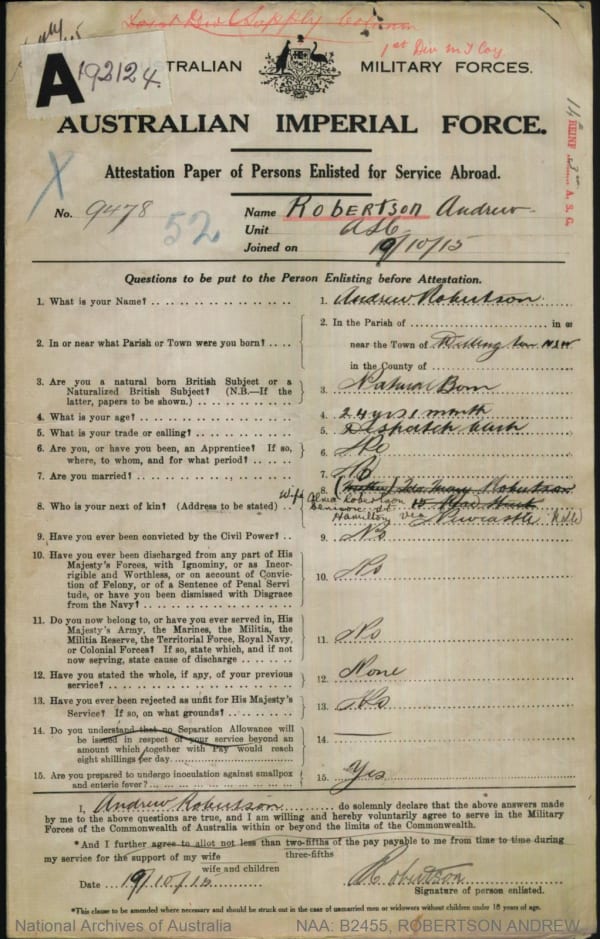 1st Div Supply Column
1st Div M T Coy
A 192124
TRALIAN MILITARY FORCES.
AUSTRALIAN IMPERIAL FORCE.
REINF A. S. C.
Attestation Paper of Persons Enlisted for Service Abroad.
X
No. 9478 Name ROBERTSON Andrew
52 Unit ASC
Joined on 19/10/15
Questions to be put to the Person Enlisting before Attestation.
1. What is your Name? 1. Andrew Robertson
2. In or near what Parish or Town were you born? 2. In the Parish of in or
near the Town of NSW
in the County of
3. Are you a natural born British Subject or a
Naturalized British Subject? (N.B.—If the
latter, papers to be shown.) 3. Natural Born
4. What is your age? 4. 24 yrs 1 month
5. What is your trade or calling? 5. Despatch Clerk
6. Are you, or have you been, an Apprentice? If so,
where, to whom, and for what period? 6. No
7. Are you married? 7. No
8. (Mother) Mary Robertson
8. Who is your next of kin? (Address to be stated) Wife Alma Robertson
Denison St
Hamilton via Newcastle NSW
9. Have you ever been convicted by the Civil Power? 9. No
10. Have you ever been discharged from any part of His
Majesty's Forces, with Ignominy, or as Incor-
rigible and Worthless, or on account of Convic-
tion of Felony, or of a Sentence of Penal Servi
tude, or have you been dismissed with Disgrace
from the Navy? 10. No
11. Do you now belong to, or have you ever served in, His
Majesty's Army, the Marines, the Militia, the
Militia Reserve, the Territorial Force, Royal Navy,
or Colonial Forces? If so, state which, and if not
now serving, state cause of discharge 11. No
12. Have you stated the whole, if any, of your previous
service? 12. None
13. Have you ever been rejected as unfit for His Majesty's
Service? If so, on what grounds? 13. No
14. Do you understand that no Separation Allowance will
be issued in respect of your service beyond an
amount which together with Pay would reach
eight shillings per day 14. —
15. Are you prepared to undergo inoculation against smallpox
and enteric fever? 15. Yes
I, Andrew Robertson do solemnly declare that the above answers made
by me to the above questions are true, and I am willing and hereby voluntarily agree to serve in the Military
Forces of the Commonwealth of Australia within or beyond the limits of the Commonwealth.
*And I further agree to allot not less than two-fifths of the pay payable to me from time to time during
three-fifths
my service for the support of my wife
wife and children
Date 19/10/15 A Robertson
Signature of person enlisted.
*This clause to be amended where necessary and should be struck out in the case of unmarried men or widowers without children under 18 years of age.
National Archives of Australia NAA: B2455, ROBERTSON ANDREW